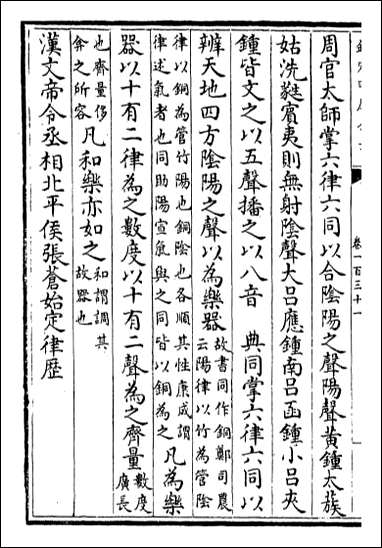 卷一百三十一
周官太師掌六律六同以合陰陽之聲陽聲黃鍾太蔟
姑洗蕤賓夷則無射陰聲大吕應鍾南吕函鍾小吕夾
鍾皆文之以五聲播之以八音 典同掌六律六同以
辨天地四方陰陽之聲以為樂器故書同作銅鄭司農云陽律以竹為管陰
律以銅為管竹陽也銅陰也各順其性康成謂律述氣者也同助陽宣氣與之同皆以銅為之凡為樂
器以十有二律為之數度以十有二聲為之齊量數度廣長
也齊量侈弇之所容凡和樂亦如之和謂調其故器也
漢文帝令丞相北平侯張蒼始定律歴